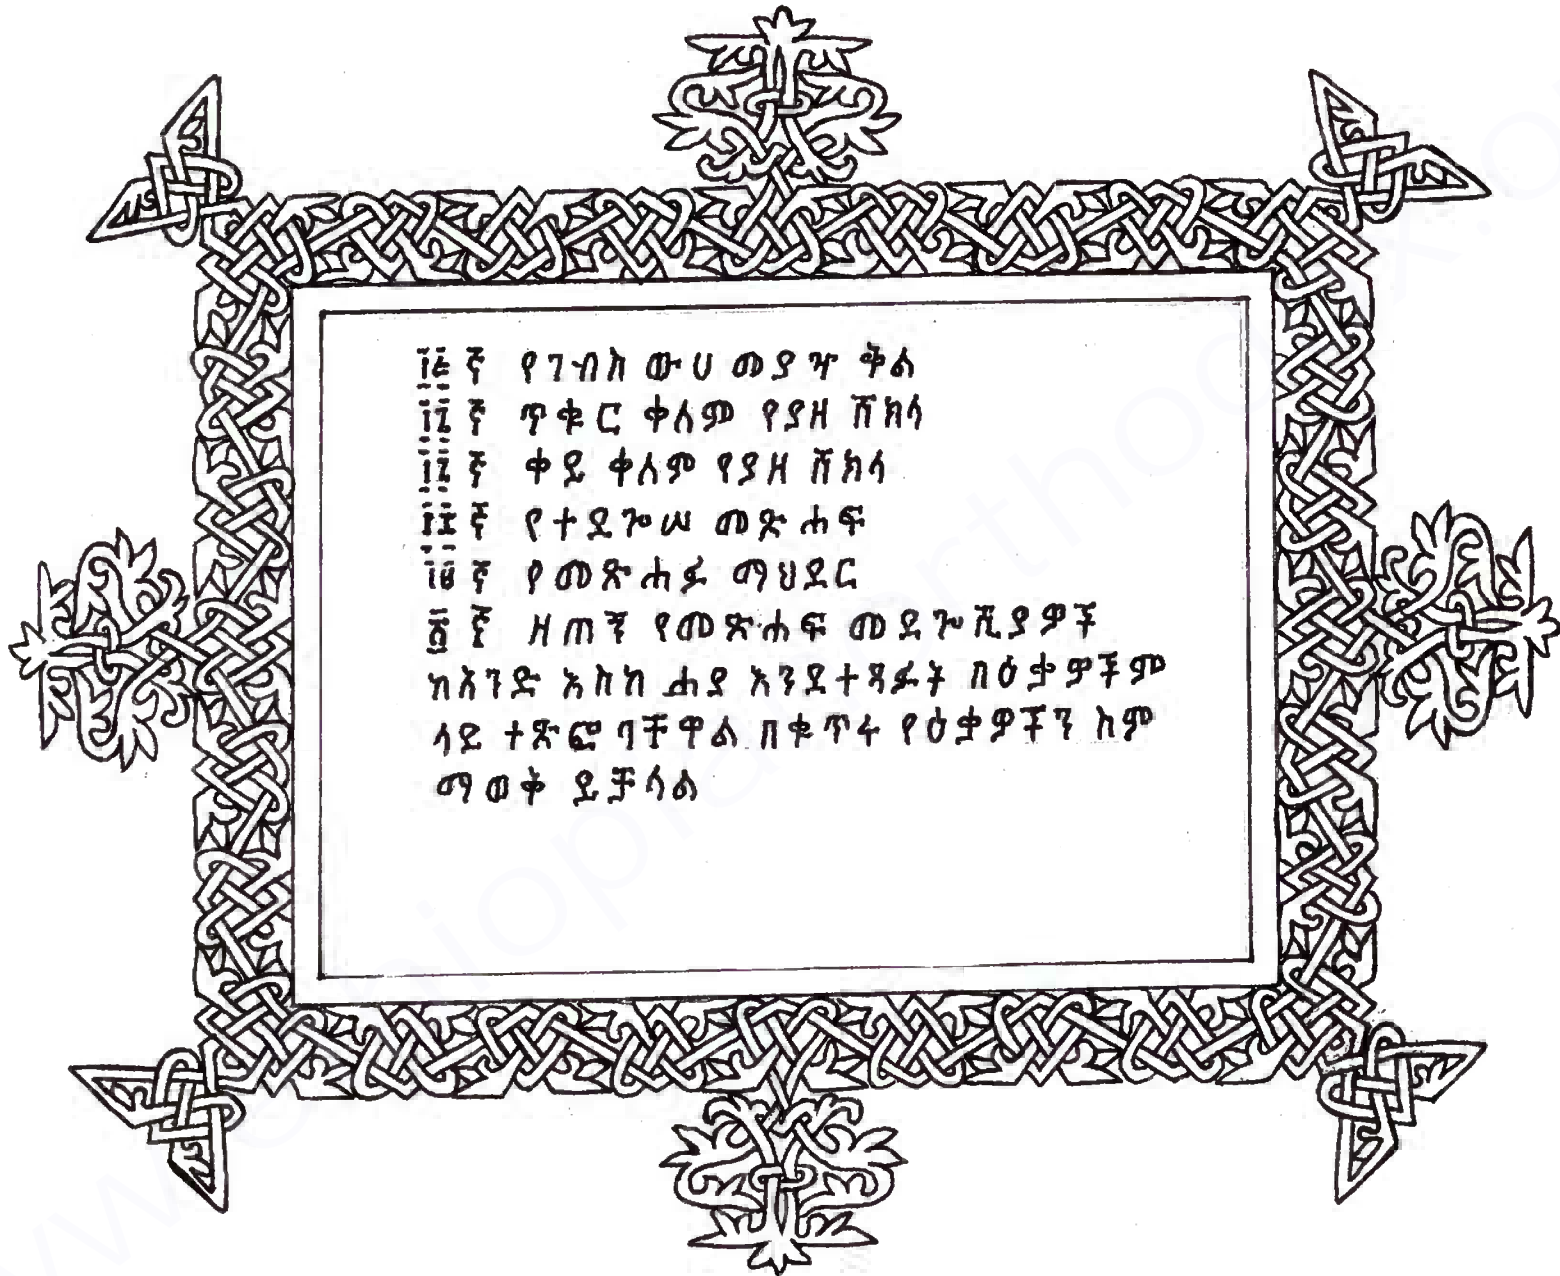 ፲፭ኛ የገብስ ውሀ መያዣ ቅል
፲፮ኛ ጥቁር ቀለም የያዘ ሸክላ
፲፯ኛ ቀይ ቀለም የያዘ ሸክላ
፲፰ኛ የተደጎሠ መጽሐፍ
፲፱ኛ የመጽሐፉ ማህደር
፳ኛ ዘጠኝ የመጽሐፍ መደጎሺያዎች
ከአንድ እስከ ሐያ እንደተጻፉት በዕቃዎችም
ላይ ተጽፎባቸዋል በቁጥሩ የዕቃዎችን ስም
ማወቅ ይቻላል